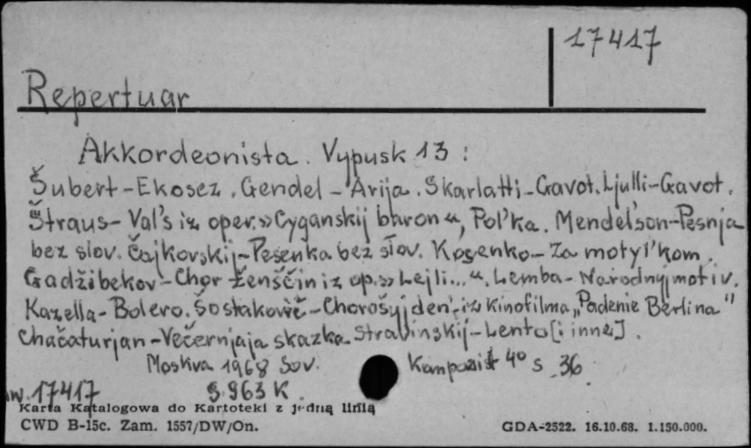 17417
Repertuar
Akkordeonista. Vypusk 13 :
Šubert-Ekosez. Gendel - Arija. Skarlatti-Gavot. Ljulli-Gavot.
Štraus- Val's iz oper. "Cyganskij baron", Pol'ka. Mendel'son-Pesnja
bez slov. Čajkovskij-Pesenka bez slov. Kosenko-Za motyl'kom.
Gadžibekov-Chor ženščin iz op. "Lejli...". Lemba-Narodnyj motiv.
Kazella-Bolero. Šostakovič-Chorošyj den', iz kinofilma "Padenie Berlina"
Chačaturjan-Večernjaja skazka. Stravinskij-Lento [i inne].
Moskva 1968 Sov. Kompozit 4° s. 36.
iw. 17417 S. 963 K.
Karta Katalogowa do Kartoteki z jedną linią
CWD B-15c. Zam. 1557/DW/On. GDA-2522. 16.10.68. 1.150.000.